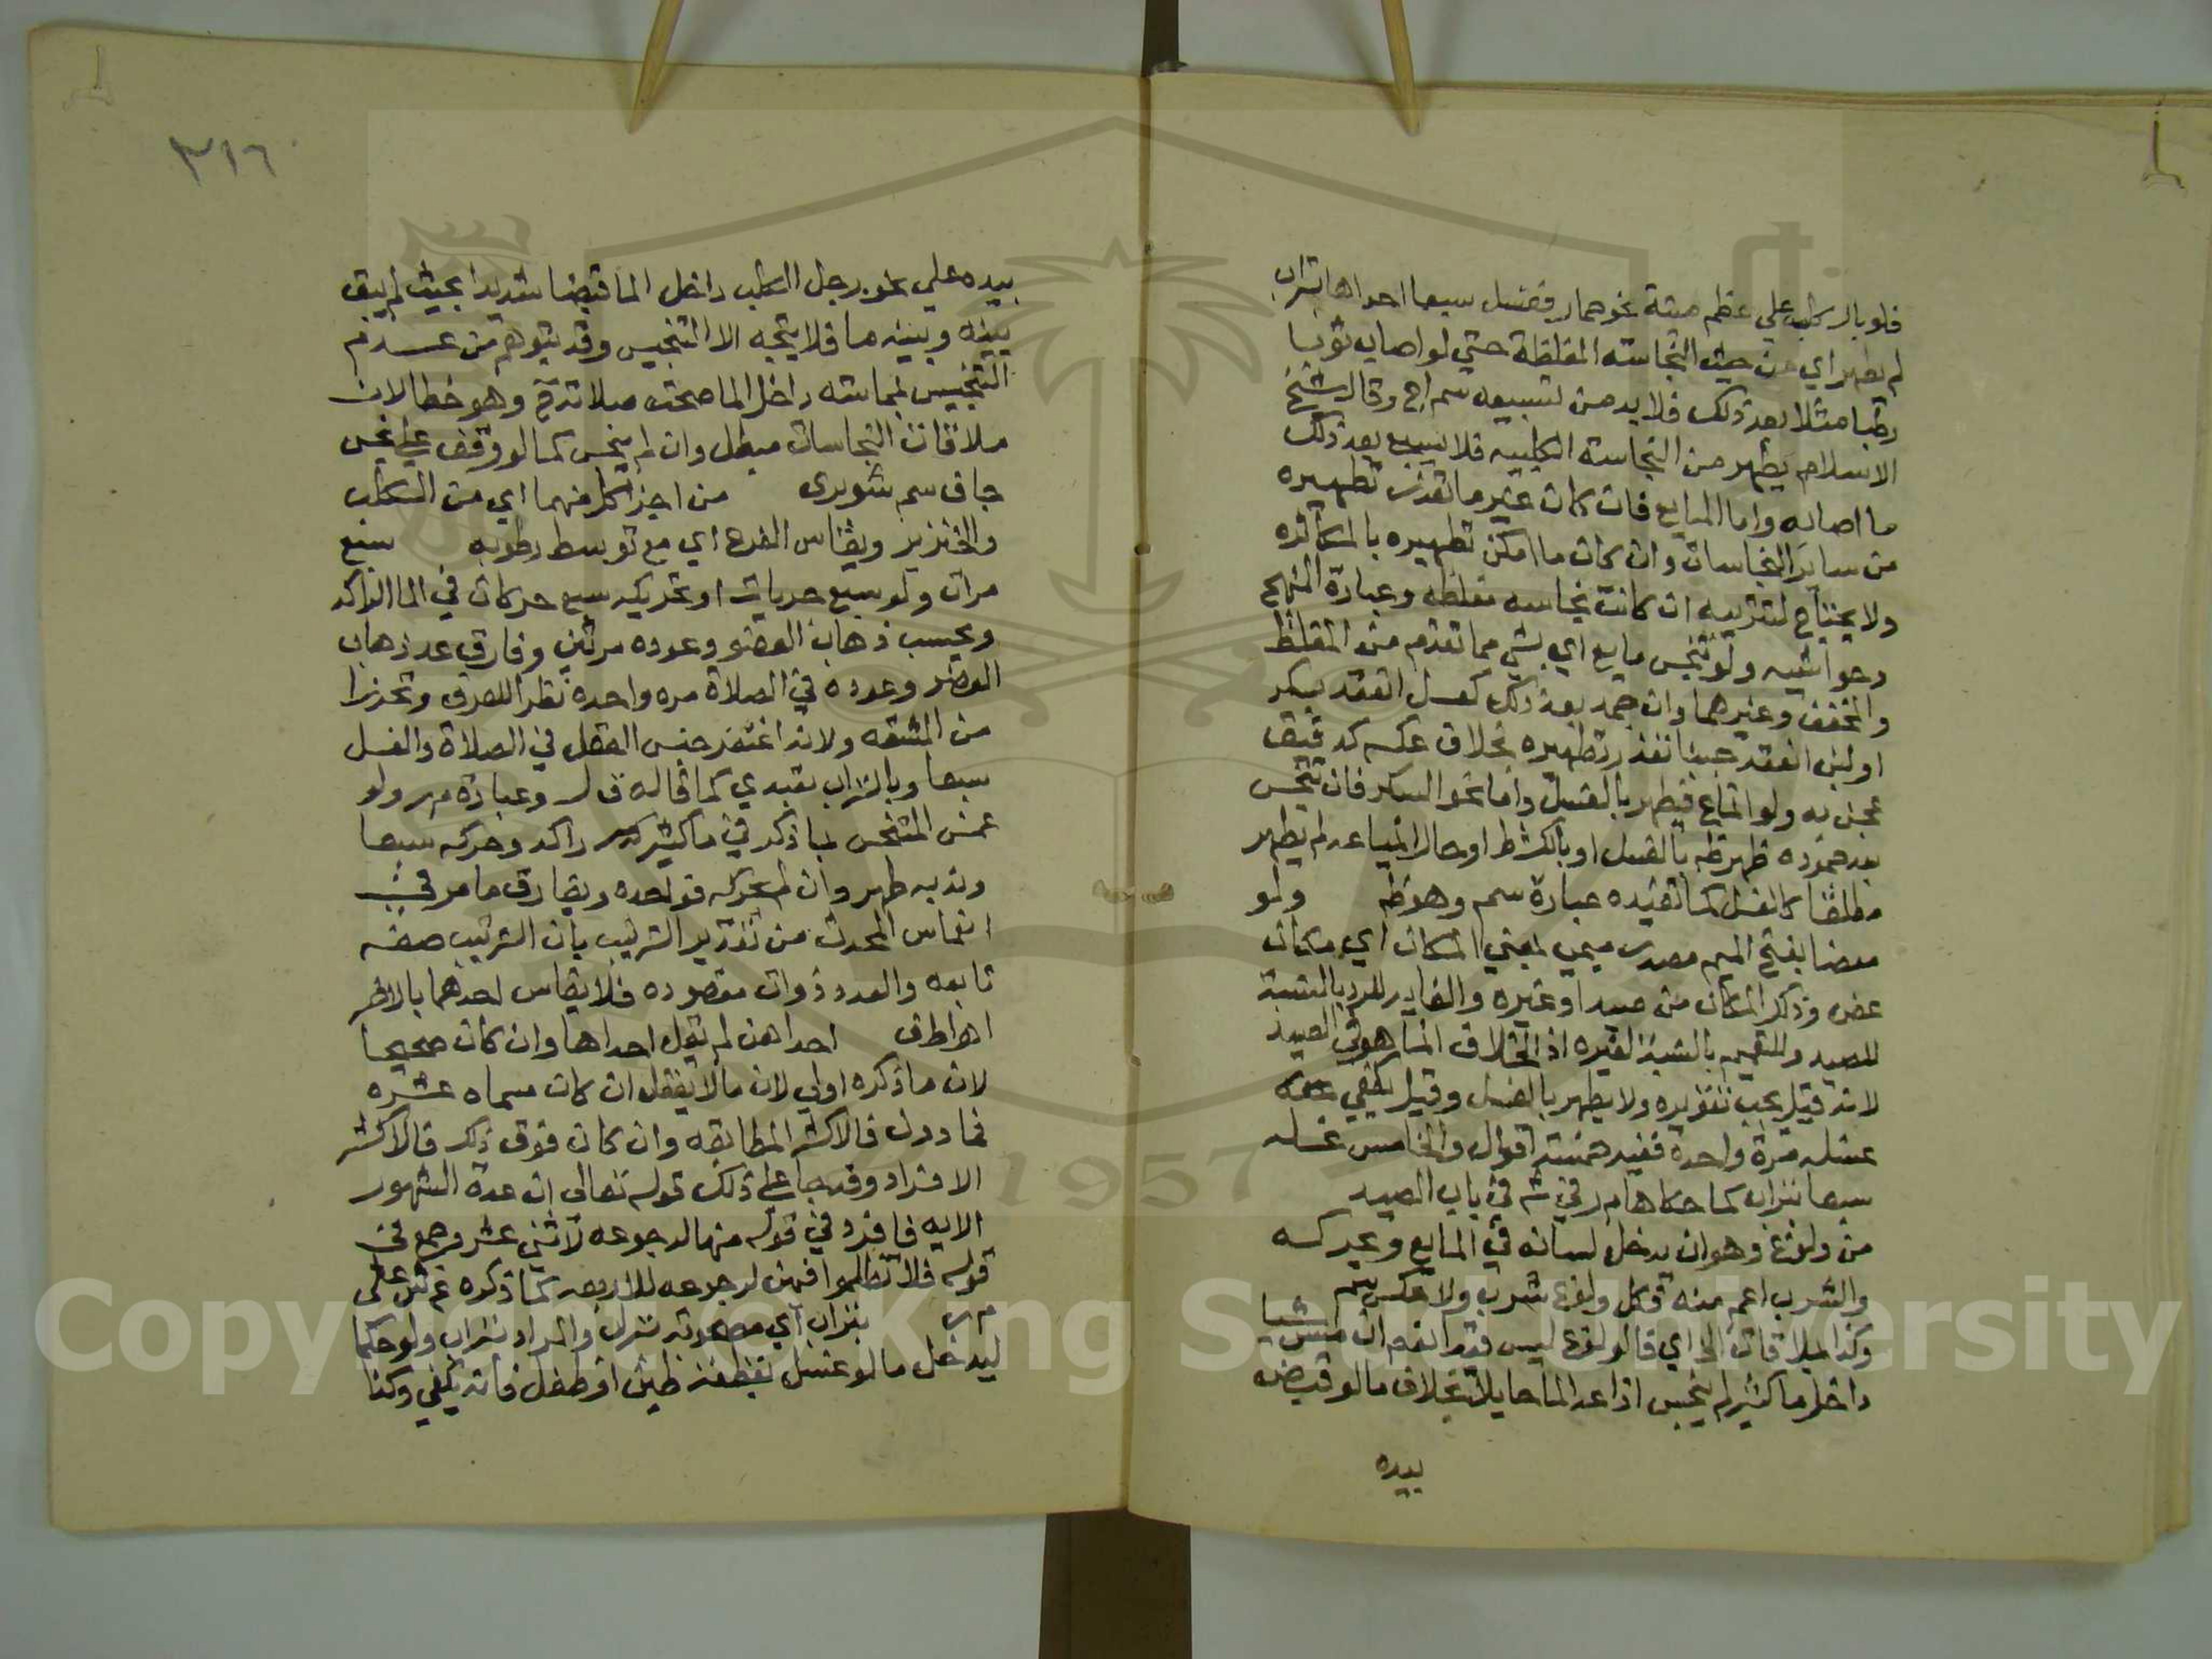 فلو بال كلب علي عظم ميتة نحو حمار فغسل سبعا احداها بتراب
لم يطهر اي من حيث النجاسة المغلظة حتي لو اصاب ثوبا
رطبا مثلا بعد ذلك فلا بد من تسبيعه سم اج وقال شيخ
الاسلام يطهر من النجاسة الكلبيه فلا يسبع بعد ذلك
ما اصابه واما المايع فان كان غير ما تعذر تطهيره
من ساير النجاسات وان كان ما امكن تطهيره بالمكاثره
ولا يحتاج لتتريبه ان كانت نجاسه مغلظه وعبارة المنهج
وحواشيه ولو تنجس مايع اي بشي مما تقدم من المغلظ
والمخفف وغيرهما وان جمد بعد ذلك كعسل انعقد بسكر
او لبن انعقد جبنا تعذر تطهيره بخلاف عكسه كدقيق
عجن به ولو انماع فيطهر بالغسل واما نحو السكر فان تنجس
بعد جموده طهر ظه بالغسل او بالكشط او حال انمياعه لم يطهر
مطلقا كالعسل كما تفيده عبارة سم وهو ظه ولو
معضا بفتح الميم مصدر ميمي بمعني المكان اي مكان
عض وذكر المكان من صيد او غيره والغاية للرد بالنسبة
للصيد وللتعميم بالنسبة لغيره اذ الخلاف انما هو في الصيد
لانه قيل يجب تقويره ولا يطهر بالغسل وقيل يكفي
غسله مرة واحدة ففيه خمسة اقوال والخامس غسله
سبعا بتراب كما حكاها م ر في ش في باب الصيد
من ولوغ وهو ان يدخل لسانه في المايع ويحركه
والشرب اعم منه فكل ولوغ شرب ولا عكس سم
وكذا بملاقات الخ اي فالولوغ ليس قيدا نعم ان مس شيا
داخل ما كثير لم ينجس اذ اعد الما حايلا بخلاف ما لو قبض
بيده
٣١٦
بيده علي نحو رجل الكلب داخل الما قبضا شديدا بحيث لم يبق
بينه وبينه ما فلا يتجه الا التنجيس وقد يتوهم من عدم
التنجيس بمماسته داخل الما صحت صلاته ح وهو خطا لان
ملاقات النجاسات مبطل وان لم ينجس كما لو وقف علي نجس
جاف سم شوبري من اجزا كل منهما اي من الكلب
والخنزير ويقاس الفرع اي مع توسط رطوبه سبع
مرات ولو سبع جريات او تحريكه سبع حركات في الما الراكد
ويحسب ذهاب العضو وعوده مرتين وفارق عد ذهاب
العضو وعوده في الصلاة مره واحدة نظرا للعرف وتحرزا
من المشقه ولانه اغتفر جنس الفعل في الصلاة والغسل
سبعا وبالتراب تعبدي كما قاله ق ل وعبارة م ر ولو
غمس المتنجس بما ذكر في ما كثير راكد وحركه سبعا
وتربه طهر وان لم يحركه فواحده ويفارق ما مر في
انغماس المحدث من تقدير الترتيب بان الترتيب صفه
تابعه والعدد ذوات مقصوده فلا يقاس احدهما بالاخر
اه اطف احداهن لم يقل احداها وان كان صحيحا
لان ما ذكره اولي لان ما لا يعقل ان كان مسماه عشره
فما دون فالاكثر المطابقه وان كان فوق ذلك فالاكثر
الافراد وقد جا علي ذلك قوله تعالى ان عدة الشهور
الايه فافرد في قوله منها لرجوعه لاثني عشر وجمع في
قوله فلا تظلموا فيهن لرجوعه للاربعه كما ذكره ع ش على
م ر بتراب اي مصحوبة بتراب والمراد بتراب ولو حكما
ليدخل ما لو غسل بقطعة طين او طفل فانه يكفي وكذا